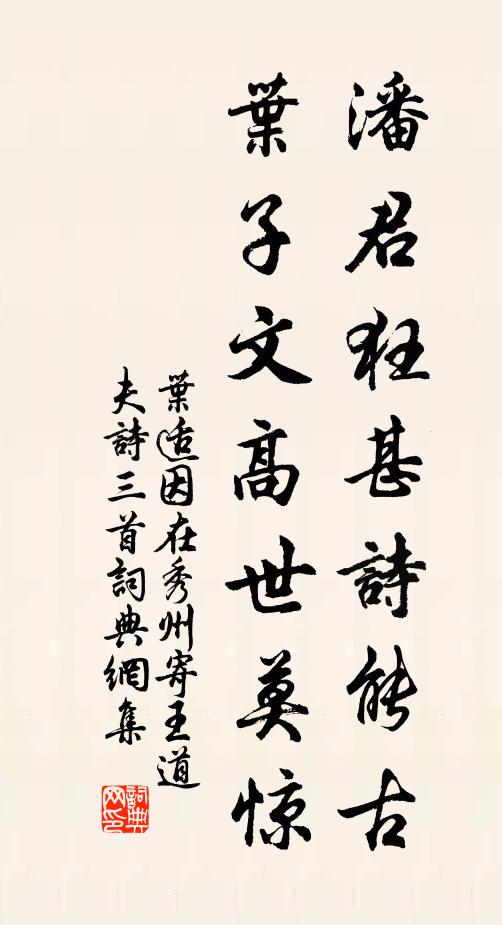 潘君狂甚詩能古
葉子文高世莫惊
葉适因在秀州寄王道
夫詩三首詞典網集
詞典
网印